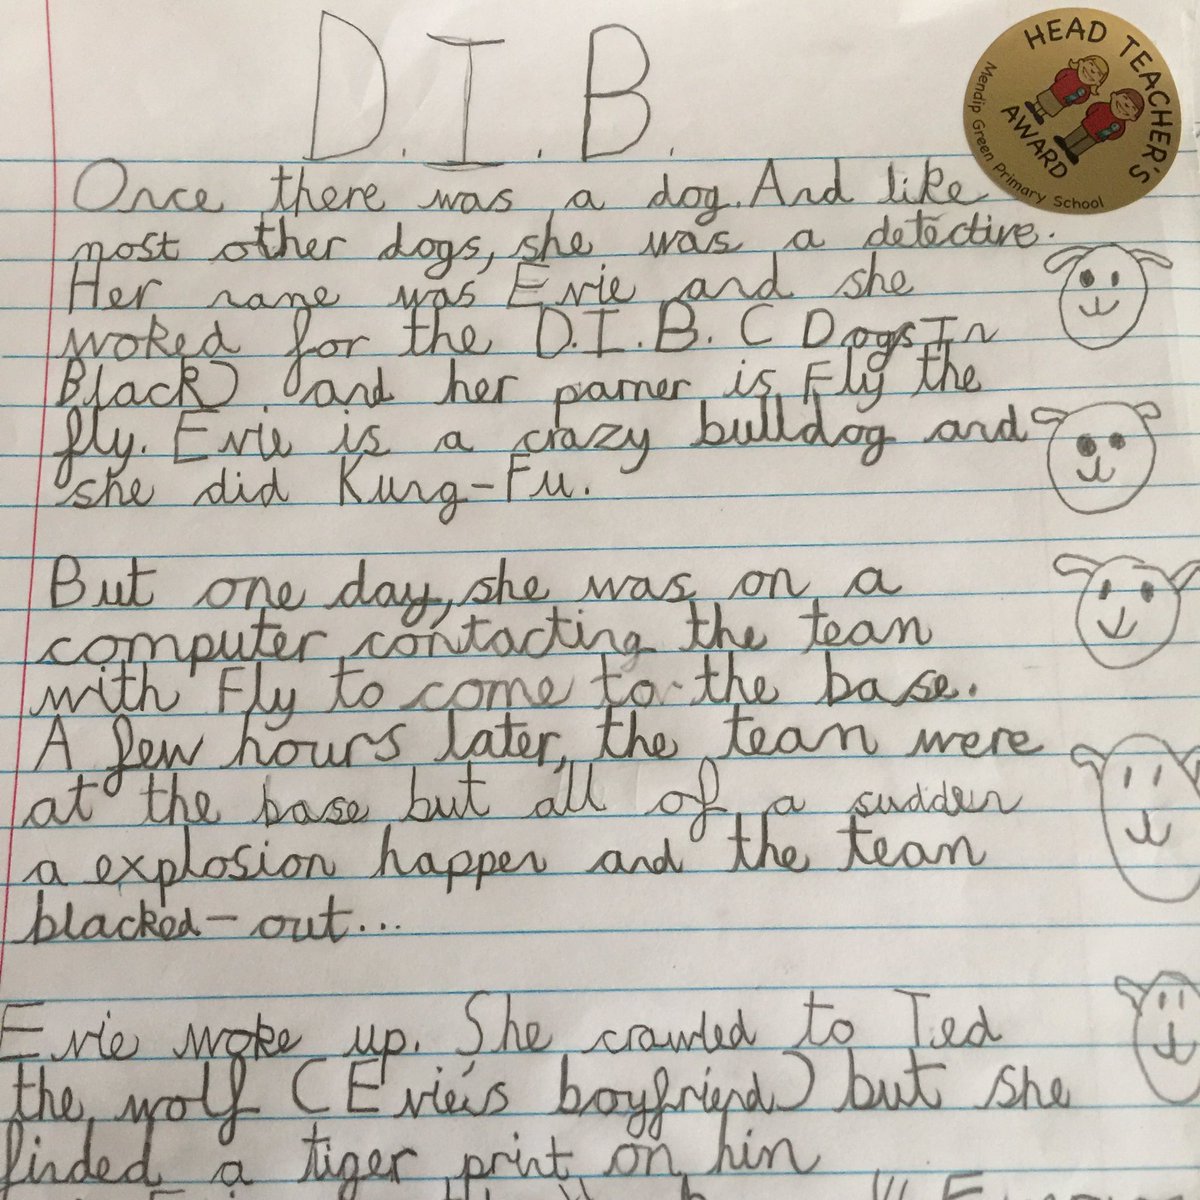 D.I.B.
HEAD TEACHER'S
AWARD
Mendip Green Primary School
Once there was a dog. And like
most other dogs, she was a detective.
Her name was Evie and she
woked for the D.I.B. ( Dogs In
Black) and her parner is Fly the
fly. Evie is a crazy bulldog and
she did Kung-Fu.
But one day, she was on a
computer contacting the team
with Fly to come to the base.
A few hours later, the team were
at the base but all of a sudden
a explosion happen and the team
blacked-out...
Evie woke up. She crawled to Ted
the wolf (Evie's boyfriend) but she
finded a tiger print on him